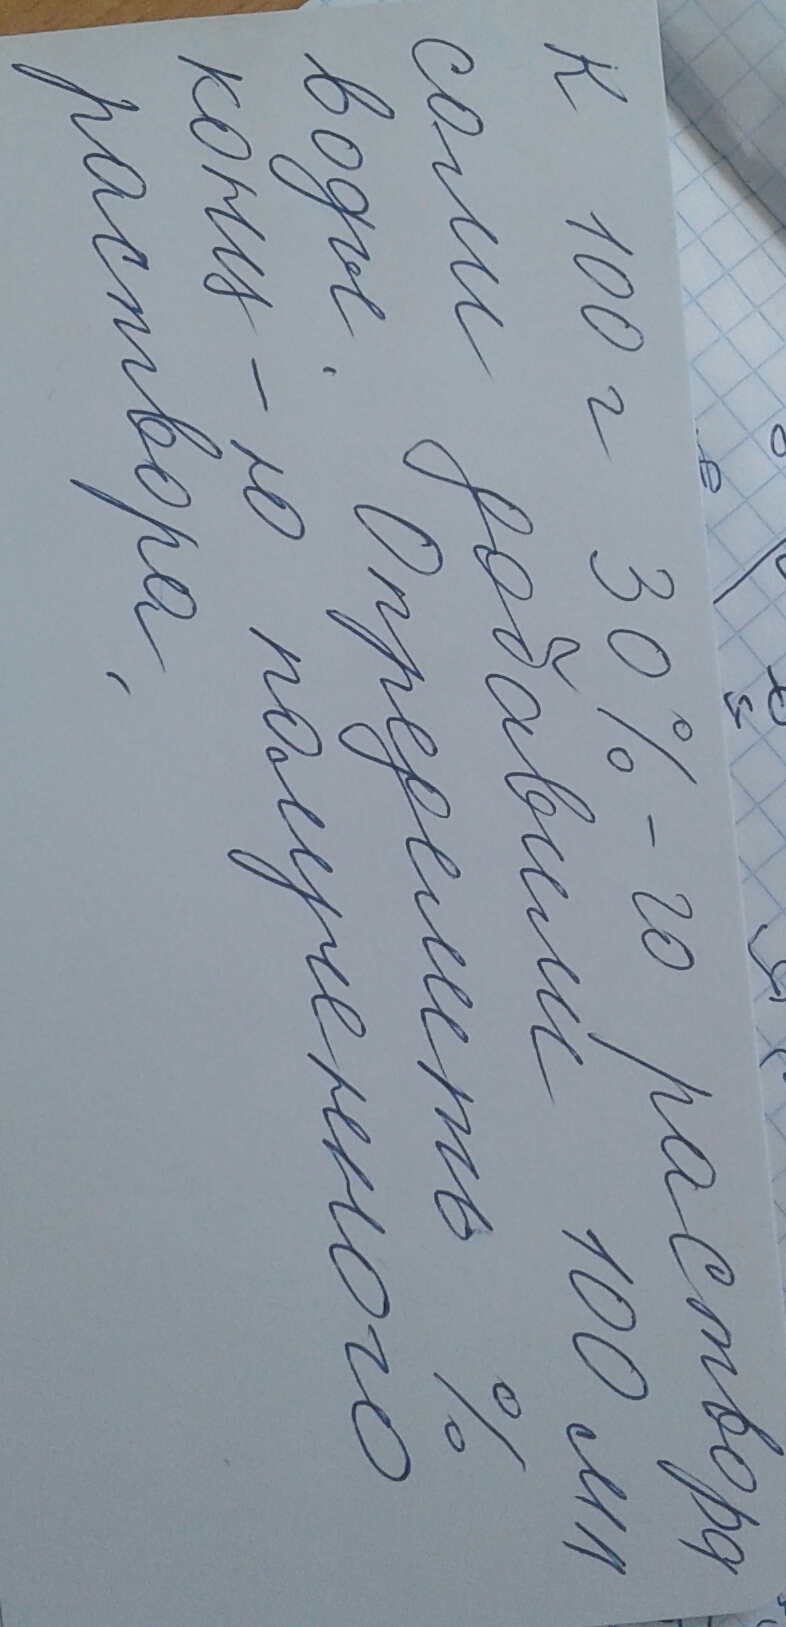 К 100 г 30%-го раствора
соли добавили 100 мл
воды. Определить %
конц-ю полученного
раствора.